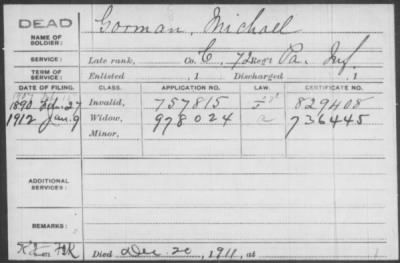 DEAD
Gorman, Michael
NAME OF SOLDIER:
SERVICE: Late rank, Co. C, 72 Reg't Pa. Inf.
TERM OF SERVICE: Enlisted , 1 Discharged , 1
DATE OF FILING. CLASS. APPLICATION NO. LAW. CERTIFICATE NO.
1890 27 Invalid, 757815 829408
1912 Jan. 9 Widow, 978024 a 736445
Minor,
ADDITIONAL SERVICES:
REMARKS:
Died Dec 20, 1911, at